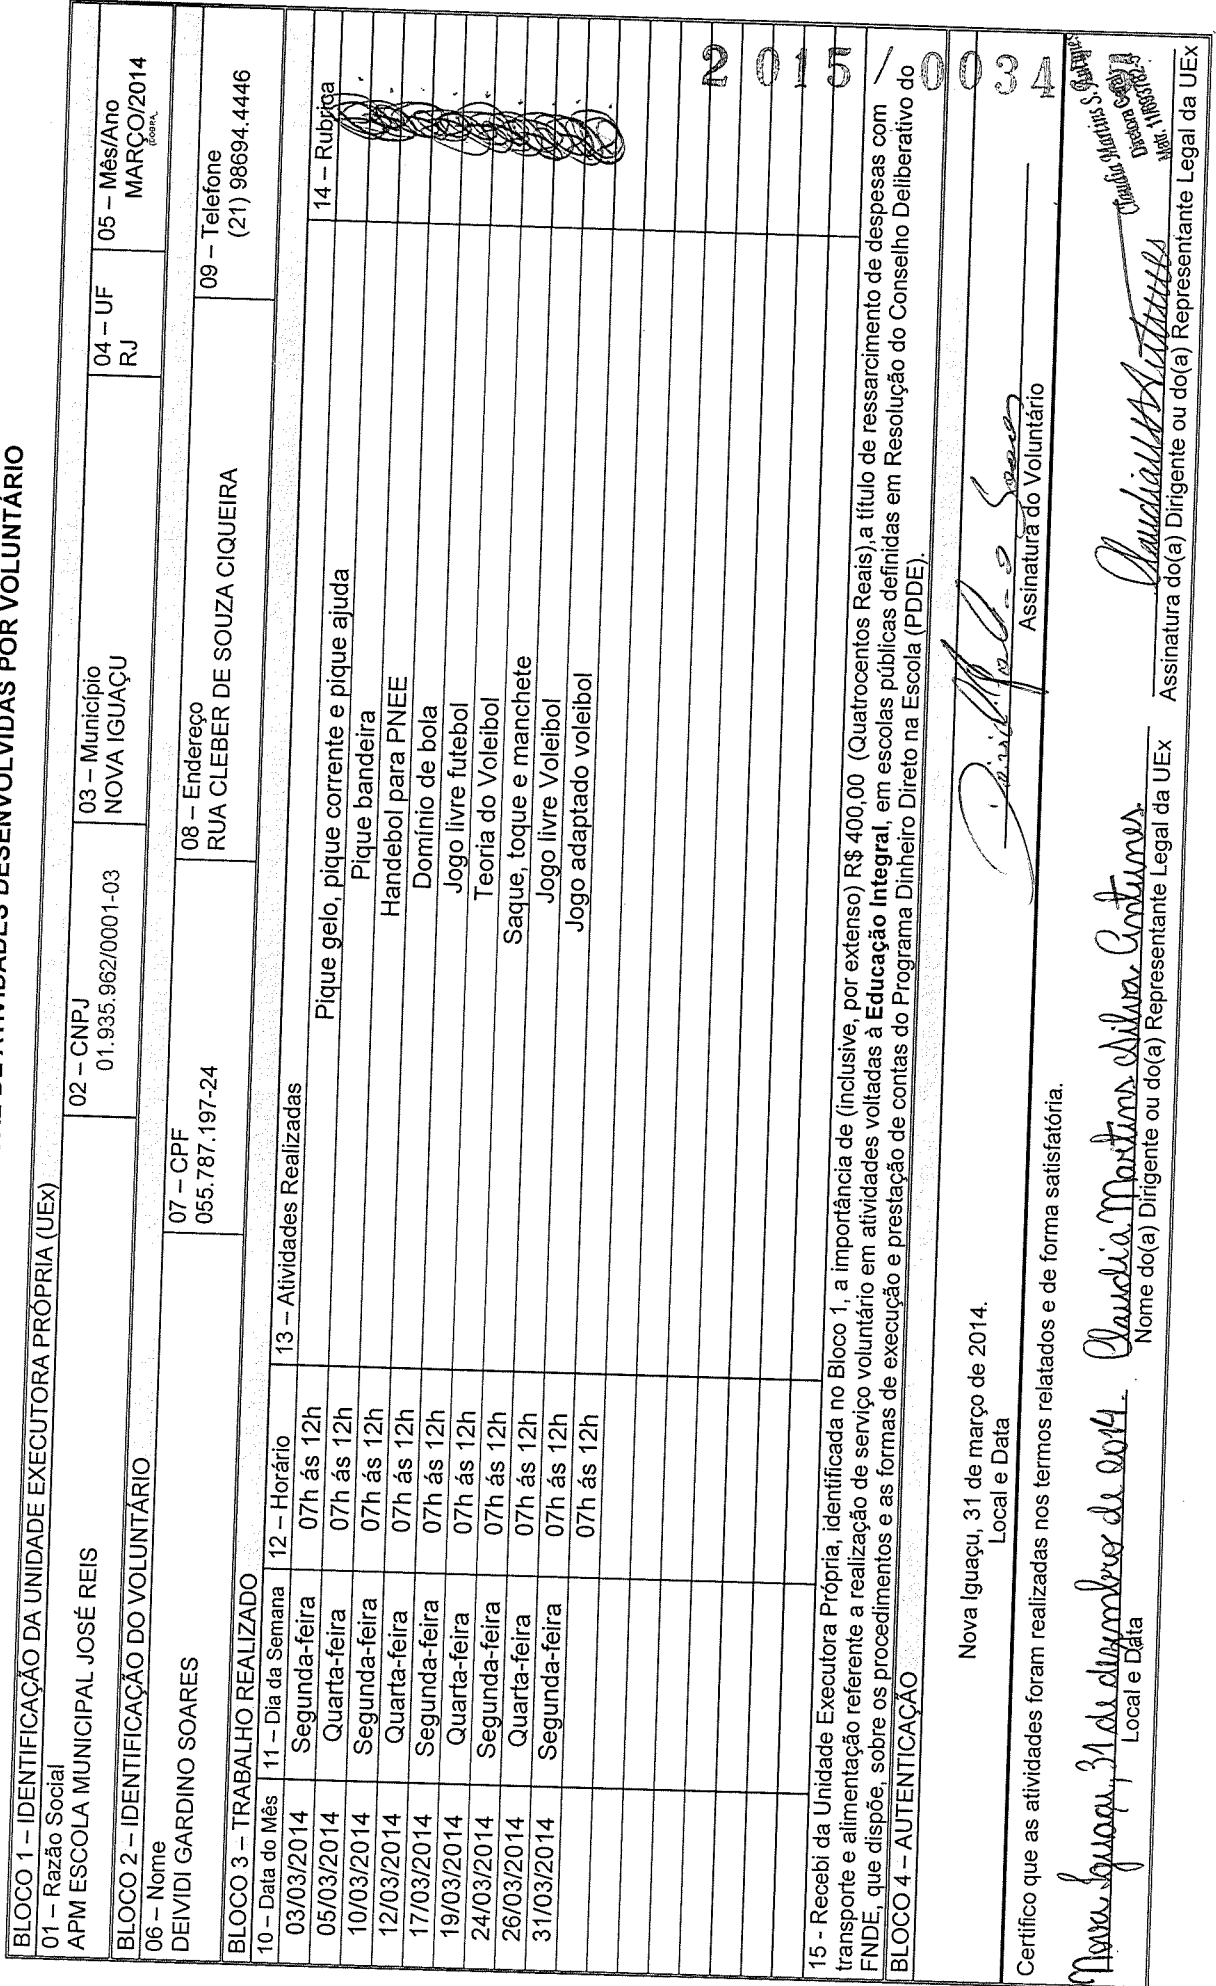 DE ATIVIDADES DESENVOLVIDAS POR VOLUNTÁRIO
BLOCO 1 – IDENTIFICAÇÃO DA UNIDADE EXECUTORA PRÓPRIA (UEx)
01 – Razão Social
APM ESCOLA MUNICIPAL JOSÉ REIS
02 – CNPJ
01.935.962/0001-03
03 – Município
NOVA IGUAÇU
04 – UF
RJ
05 – Mês/Ano
MARÇO/2014
BLOCO 2 – IDENTIFICAÇÃO DO VOLUNTÁRIO
06 – Nome
DEIVIDI GARDINO SOARES
07 – CPF
055.787.197-24
08 – Endereço
RUA CLEBER DE SOUZA CIQUEIRA
09 – Telefone
(21) 98694.4446
BLOCO 3 – TRABALHO REALIZADO
10 – Data do Mês 11 – Dia da Semana 12 – Horário 13 – Atividades Realizadas 14 – Rubrica
03/03/2014 Segunda-feira 07h ás 12h Pique gelo, pique corrente e pique ajuda
05/03/2014 Quarta-feira 07h ás 12h Pique bandeira
10/03/2014 Segunda-feira 07h ás 12h Handebol para PNEE
12/03/2014 Quarta-feira 07h ás 12h Domínio de bola
17/03/2014 Segunda-feira 07h ás 12h Jogo livre futebol
19/03/2014 Quarta-feira 07h ás 12h Teoria do Voleibol
24/03/2014 Segunda-feira 07h ás 12h Saque, toque e manchete
26/03/2014 Quarta-feira 07h ás 12h Jogo livre Voleibol
31/03/2014 Segunda-feira 07h ás 12h Jogo adaptado voleibol
07h ás 12h
2015/0034
15 - Recebi da Unidade Executora Própria, identificada no Bloco 1, a importância de (inclusive, por extenso) R$ 400,00 (Quatrocentos Reais),a título de ressarcimento de despesas com
transporte e alimentação referente a realização de serviço voluntário em atividades voltadas à Educação Integral, em escolas públicas definidas em Resolução do Conselho Deliberativo do
FNDE, que dispõe, sobre os procedimentos e as formas de execução e prestação de contas do Programa Dinheiro Direto na Escola (PDDE).
BLOCO 4 – AUTENTICAÇÃO
Nova Iguaçu, 31 de março de 2014.
Local e Data
Assinatura do Voluntário
Certifico que as atividades foram realizadas nos termos relatados e de forma satisfatória.
Nova Iguaçu, 31 de dezembro de 2014.
Local e Data
Claudia Martins Silva Antunes
Nome do(a) Dirigente ou do(a) Representante Legal da UEx
Claudia Martins S. Antunes
Diretora Geral
Assinatura do(a) Dirigente ou do(a) Representante Legal da UEx